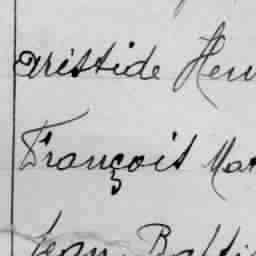 aristide Hen
François Mar
Jean Bapti